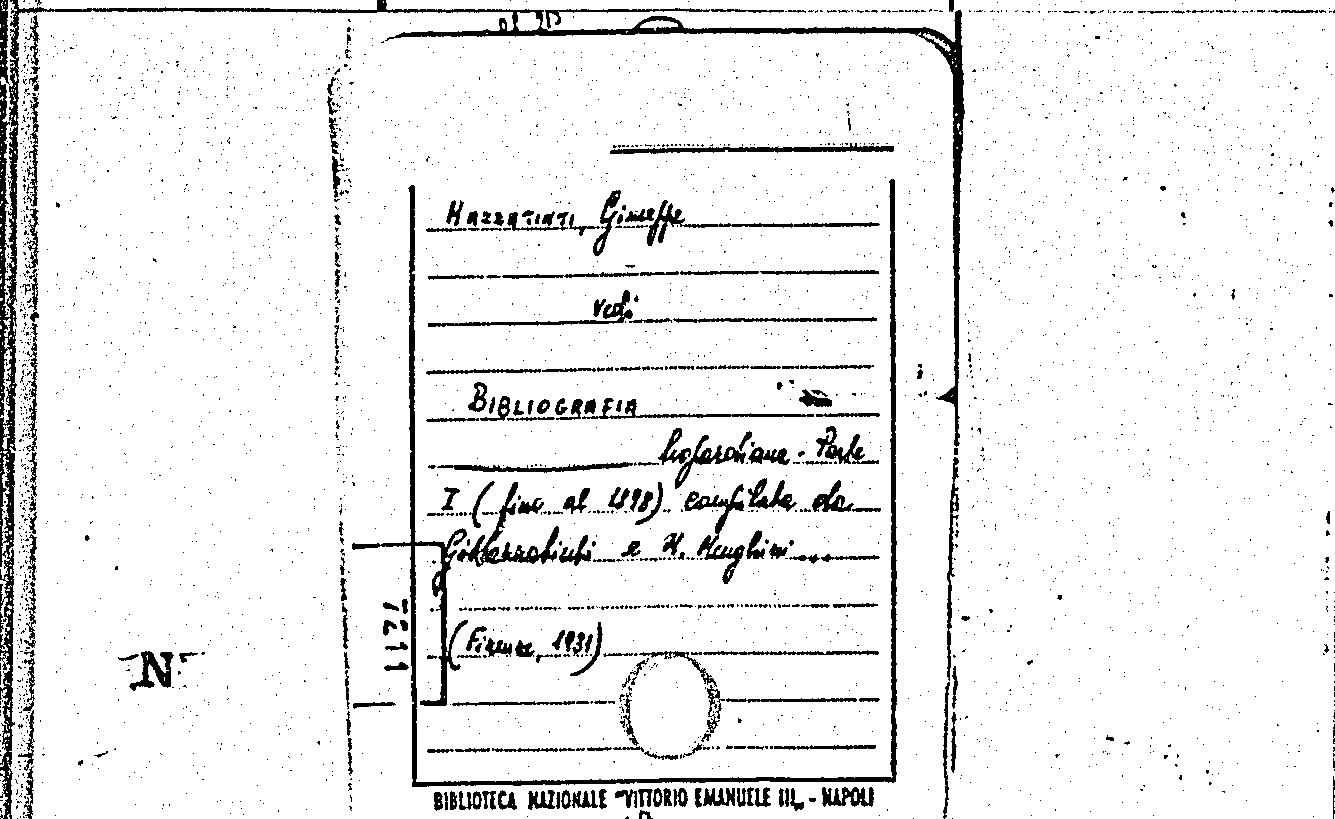 Mazzatinti, Giuseppe
vedi
Bibliografia
leopardiana. Parte
I (fino al 1898) compilata da
G. Mazzatinti e M. Menghini...
(Firenze, 1931)
7211
N
BIBLIOTECA NAZIONALE "VITTORIO EMANUELE III„ - NAPOLI